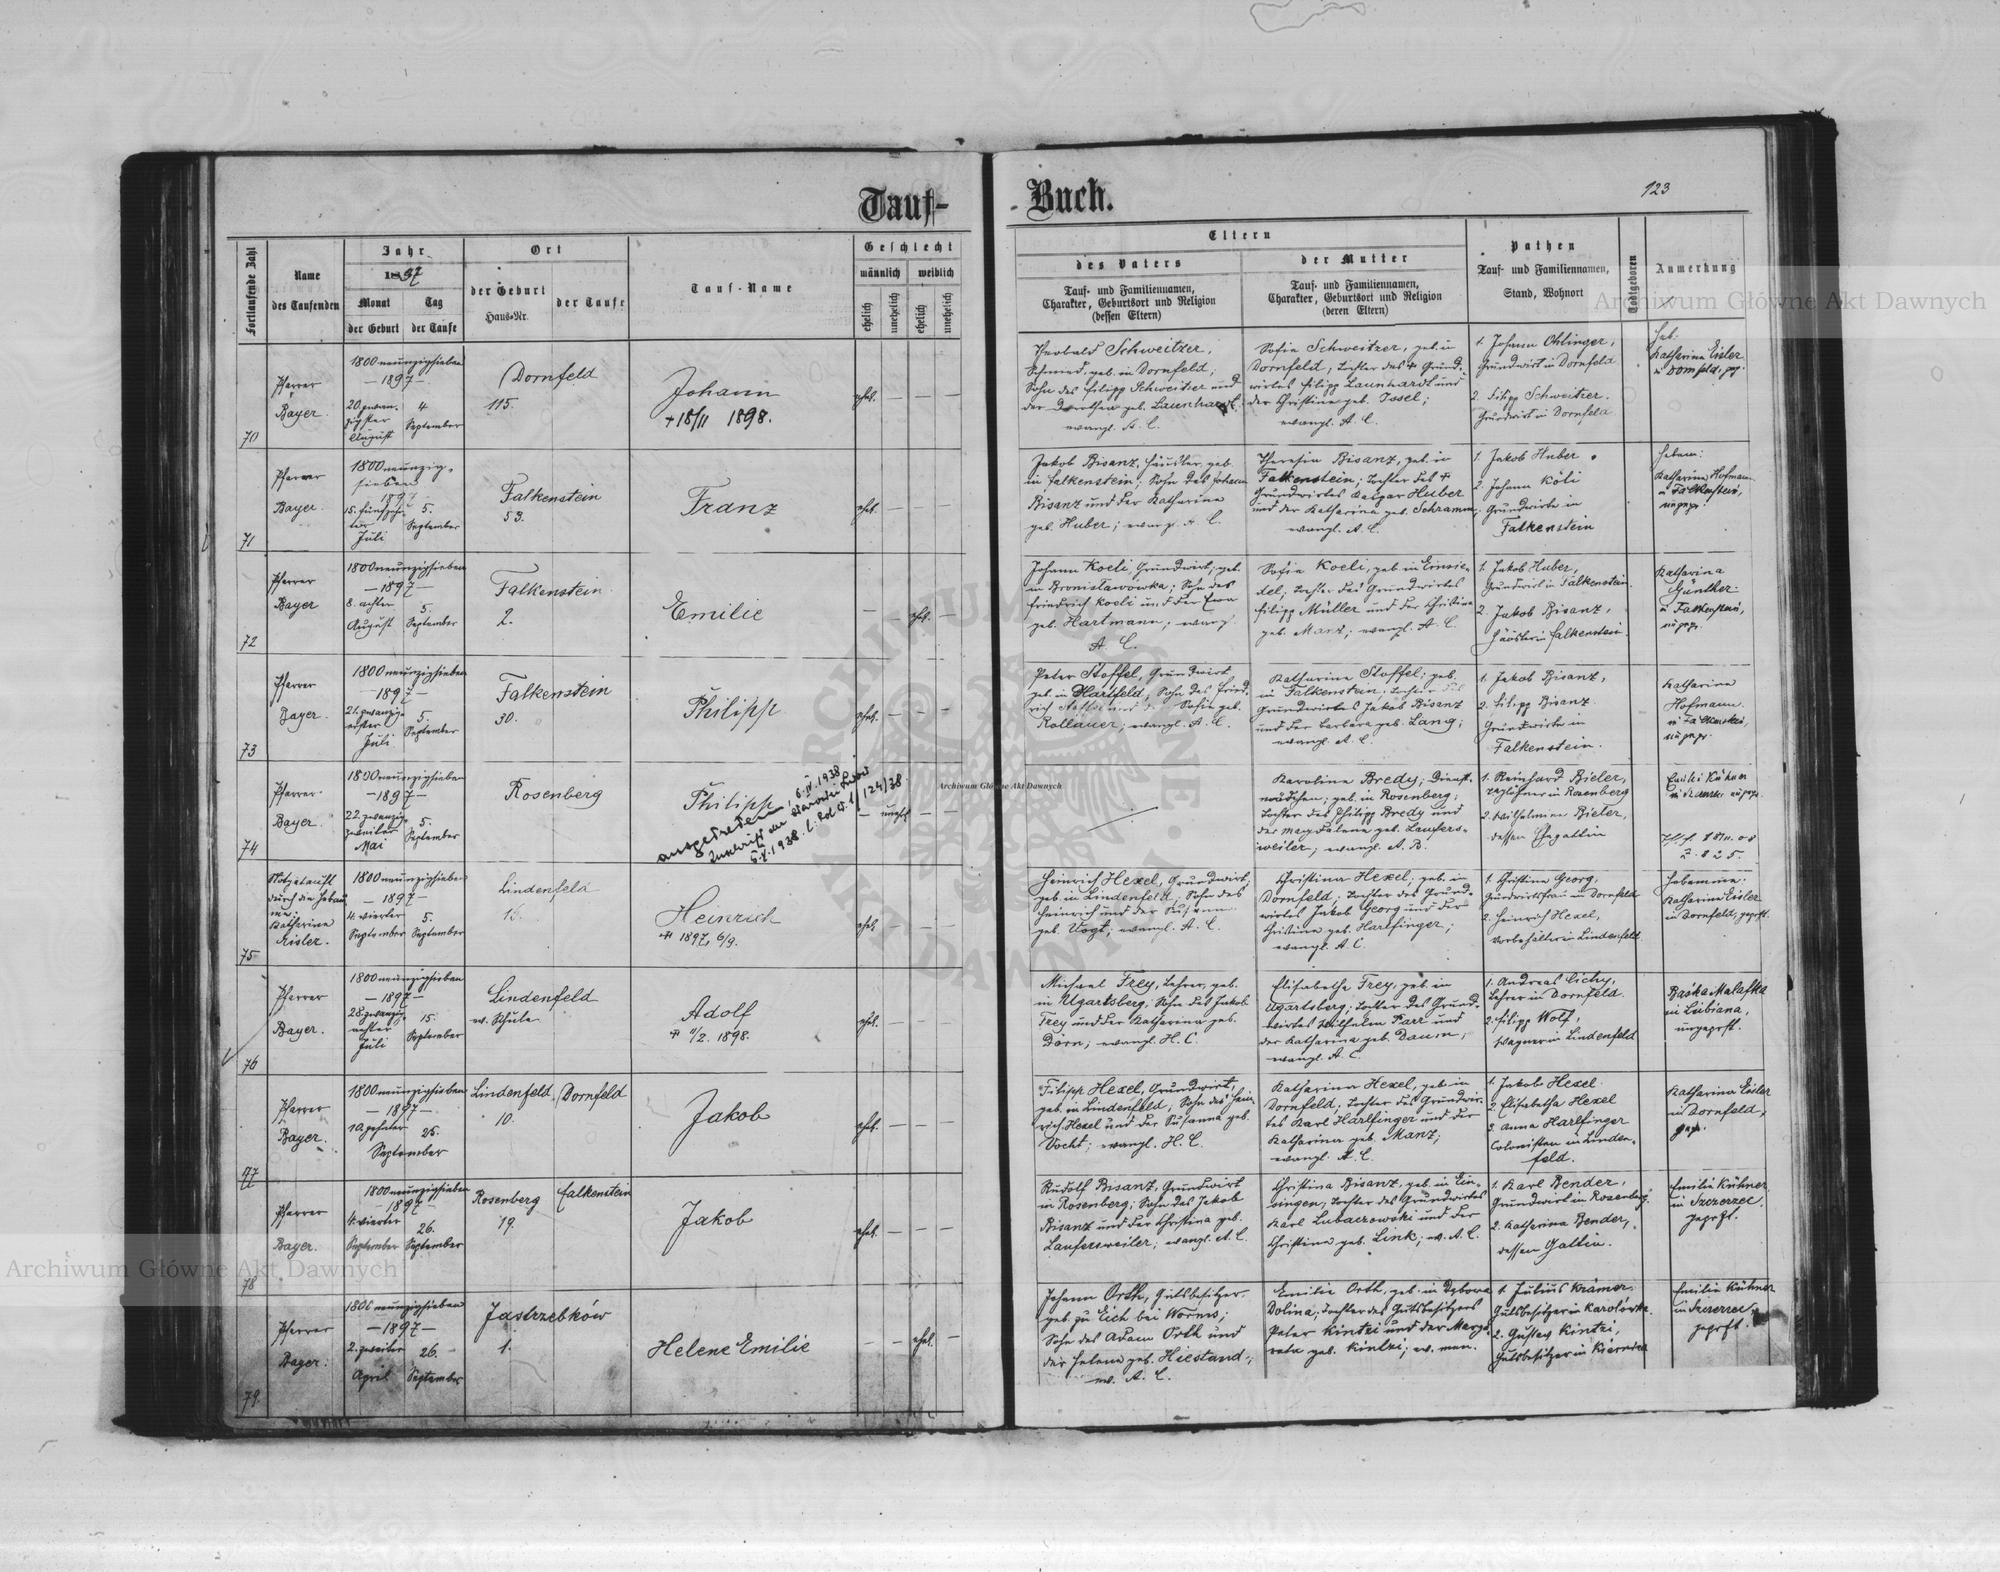 Tauf-
Buch.
123
Fortlaufende Zahl
Name
des Taufenden
Jahr
1897
Monat
Tag
der Geburt
der Taufe
Ort
der Geburt
Haus-Nr.
der Taufe
Tauf-Name
Geschlecht
männlich
weiblich
ehelich
unehelich
ehelich
unehelich
Eltern
des Vaters
Tauf- und Familiennamen,
Charakter, Geburtsort und Religion
(dessen Eltern)
der Mutter
Tauf- und Familiennamen,
Charakter, Geburtsort und Religion
(deren Eltern)
Pathen
Tauf- und Familiennamen,
Stand, Wohnort
Todtgeboren
Anmerkung
70
Pfarrer
Bayer.
1800 neunzigsieben
— 1897 —
20. zwan-
zigster
August
4
September
Dornfeld
115.
Johann
+ 18/11 1898.
ehel. — — —
Theobald Schweitzer,
Schmied, geb. in Dornfeld;
Sohn des Filipp Schweitzer und
der Dorothea geb. Launhardt.
evangl. A. C.
Sofie Schweitzer, geb. in
Dornfeld, Tochter des + Grund-
wirtes Filipp Launhardt und
der Christine geb. Issel;
evangl. A. C.
1. Johann Ohlinger,
Grundwirt in Dornfeld
2. Filipp Schweitzer.
Grundwirt in Dornfeld
Heb.
Katharina Eisler
in Dornfeld, gep.
71
Pfarrer
Bayer.
1800 neunzig-
sieben
1897
15. fünfzehn-
ter
Juli
5.
September
Falkenstein
53.
Franz
ehel. — — —
Jakob Bisanz, Häusler, geb.
in Falkenstein; Sohn des Johann
Bisanz und der Katharina
geb. Huber; evang. A. C.
Theresia Bisanz, geb. in
Falkenstein; Tochter des +
Grundwirtes Kaspar Huber
und der Katharina geb. Schramm;
evangl. A. C.
1. Jakob Huber
2. Johann Köli
Grundwirte in
Falkenstein
Hebam:
Katharina Hofmann
in Falkenstein,
ungepr.
72
Pfarrer
Bayer
1800 neunzigsieben
— 1897 —
8. achter
August
5.
September
Falkenstein
2.
Emilie
— — ehel. —
Johann Koeli, Grundwirt, geb.
in Bronislawowka; Sohn des
Friedrich Koeli und der Ewa
geb. Hartmann; evang.
A. C.
Sofie Koeli, geb. in Einsie-
del, Tochter des Grundwirtes
Filipp Müller und der Christine
geb. Manz; evangl. A. C.
1. Jakob Huber,
Grundwirt in Falkenstein.
2. Jakob Bisanz,
in Falkenstein.
Katharina
Günther
in Falkenstein,
ungepr.
73
Pfarrer
Bayer.
1800 neunzigsieben
— 1897 —
21. zwanzig-
erster
Juli
5.
September
Falkenstein
30.
Philipp
ehel. — — —
Peter Stoffel, Grundwirt
geb. in Hartfeld, Sohn des Fried-
rich Stoffel und der Sofie geb.
Rollauer; evangl. A. C.
Katharine Stoffel; geb.
in Falkenstein; Tochter des
Grundwirtes Jakob Bisanz
und der Barbara geb. Lang;
evangl. A. C.
1. Jakob Bisanz,
2. Filipp Bisanz
Grundwirte in
Falkenstein.
Katharina
Hofmann
in Falkenstein,
ungepr.
74
Pfarrer
Bayer.
1800 neunzigsieben
— 1897 —
22. zwanzig-
zweiter
Mai
5.
September
Rosenberg
Philipp
ausgetreten, 6.IV.1938
Zuschrift der Starostei Lwów
— unehel.
Karoline Bredy; Dienst-
mädchen; geb. in Rosenberg;
Tochter des Philipp Bredy und
der Magdalena geb. Laufers-
weiler; evangl. A. B.
1. Reinhard Bieler,
Taglöhner in Rosenberg
2. Wilhelmine Bieler,
dessen Ehegattin
75
Notgetauft
durch die Hebam-
me:
Katharina
Eisler.
1800 neunzigsieben
— 1897 —
4. vierter
September
5.
September
Lindenfeld
Heinrich
+ 1897, 6/9.
ehel. — — —
Heinrich Hexel, Grundwirt,
geb. in Lindenfeld, Sohn des
Heinrich und der Susanna
geb. Vogt; evangl. A. C.
Christina Hexel; geb. in
Dornfeld; Tochter des Grund-
wirtes Jakob Georg und der
Christine geb. Harlfinger;
evangl. A. C.
1. Christine Georg,
Grundwirtsfrau in Dornfeld
2. Heinrich Hexel,
Vorbehälter in Lindenfeld
Hebamme:
Katharina Eisler
in Dornfeld; geprft.
76
Pfarrer
Bayer.
1800 neunzigsieben
— 1897 —
28. zwanzig-
achter
Juli
15.
September
Lindenfeld
ev. Schule
Adolf
+ 11/2. 1898.
ehel. — — —
Michael Frey, Lehrer, geb.
in Ugartsberg, Sohn des Jakob
Frey und der Katharina geb.
Dorn; evangl. H. C.
Elisabetha Frey, geb. in
Ugartsberg; Tochter des Grund-
wirtes Wilhelm Parr und
der Katharina geb. Daum;
evangl. A. C.
1. Andreas Cichy,
Lehrer in Dornfeld.
2. Filipp Wolf,
Wagner in Lindenfeld
Baska Malafka
in Lubiana,
ungeprft.
77
Pfarrer
Bayer.
1800 neunzigsieben
— 1897 —
10 zehnter
September
26.
Lindenfeld
10.
Dornfeld
Jakob
ehel. — — —
Filipp Hexel, Grundwirt,
geb. in Lindenfeld, Sohn des Hein-
rich Hexel und der Susanna geb.
Vocht; evangl. H. C.
Katharina Hexel, geb. in
Dornfeld; Tochter des Grundwir-
tes Karl Harlfinger und der
Katharina geb. Manz;
evangl. A. C.
1. Jakob Hexel
2. Elisabetha Hexel
3. Anna Harlfinger
Colonisten in Linden-
feld.
Katharina Eisler
in Dornfeld,
gepr.
78
Pfarrer
Bayer.
1800 neunzigsieben
— 1897 —
4. vierter
September
26.
September
Rosenberg
19.
Falkenstein
Jakob
ehel. — — —
Rudolf Bisanz, Grundwirt
in Rosenberg, Sohn des Jakob
Bisanz und der Christina geb.
Laufersweiler; evangl. A. C.
Christina Bisanz, geb. in Ein-
singen, Tochter des Grundwirtes
Karl Lubaczowski und der
Christina geb. Link; ev. A. C.
1. Karl Bender,
Grundwirt in Rosenberg.
2. Katharina Bender,
dessen Gattin.
Emilie Kühner
in Szczerzec
geprft.
79
Pfarrer
Bayer.
1800 neunzigsieben
— 1897 —
2. zweiter
April
26.
September
Jastrzebków
1.
Helene Emilie
— — ehel. —
Johann Orth, Gutsbesitzer
geb. zu Eich bei Worms;
Sohn des Adam Orth und
der Helena geb. Hiestand;
ev. A. C.
Emilie Orth, geb. in Dębowa
Dolina; Tochter des Gutsbesitzers
Peter Kintzi und der Marga-
reta geb. Kintzi; ev. men.
1. Julius Krämer
Gutsbesitzer in Karolówka.
2. Gustav Kintzi,
Gutsbesitzer in Kiernica
Emilie Kühner
in Szczerzec,
geprft.
Archiwum Główne Akt Dawnych
Archiwum Główne Akt Dawnych
Archiwum Główne Akt Dawnych
ARCHIWUM GŁÓWNE AKT DAWNYCH